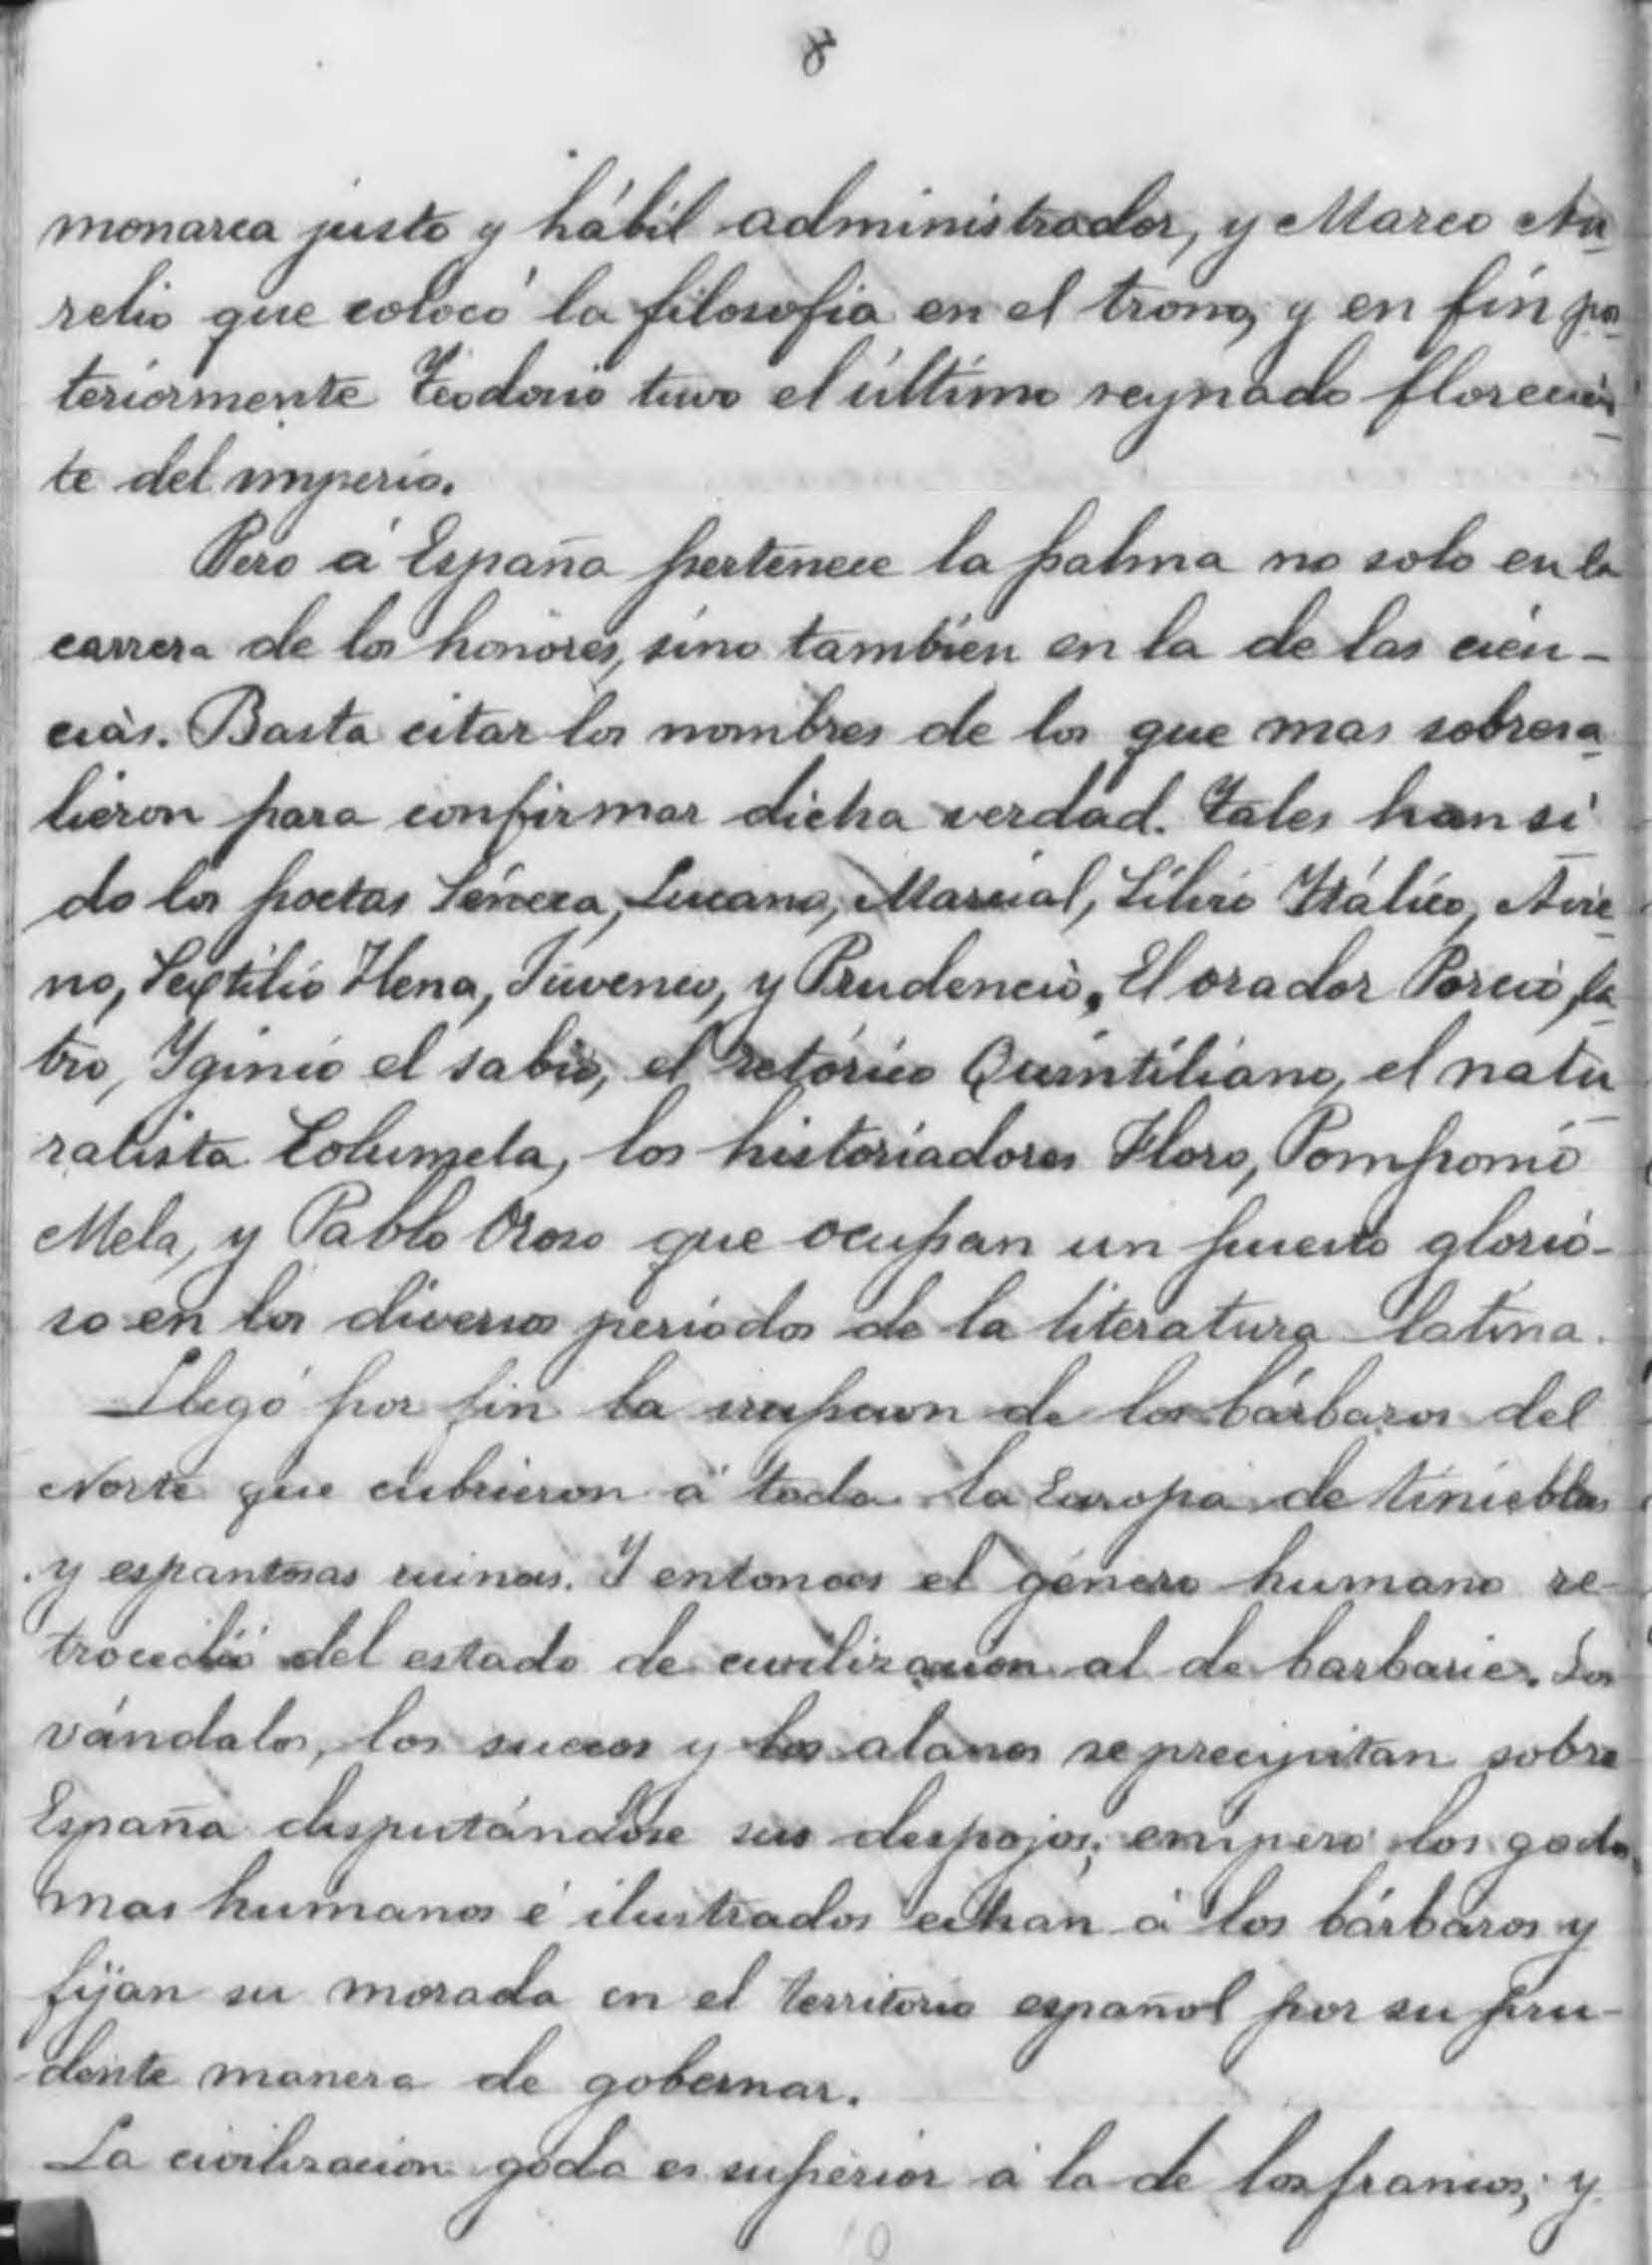 8
monarca justo y hábil administrador, y Marco Au
relio que colocó la filosofia en el trono, y en fin pos
teriormente Teodosio tuvo el último reynado florecien
te del imperio.
Pero á España pertenece la palma no solo en la
carrera de los honores, sino tambien en la de las cien-
cias. Basta citar los nombres de los que mas sobresa
lieron para confirmar dicha verdad. Tales han si
do los poetas Séneca, Lucano, Marcial, Silirio Itálico, Avie
no, Sextilio Hena, Juvenco, y Prudencio. El orador Porcio la
tro, Yginio el sabio, el retórico Quintiliano, el natu
ralista Columela, los historiadores Floro, Pomponio
Mela, y Pablo Oroso que ocupan un puesto glorio-
so en los diversos periodos de la literatura latina.
Llegó por fin la irrupcion de los bárbaros del
Norte que cubrieron á toda la Europa de tinieblas
y espantosas ruinas. Y entonces el género humano re-
trocedió del estado de civilizacion al de barbarie. Los
vándalos, los suecos y los alanos se precipitan sobre
España disputándose sus despojos; empero los godos
mas humanos é ilustrados echan á los bárbaros y
fijan su morada en el territorio español por su pru-
dente manera de gobernar.
La civilizacion goda es superior á la de los francos; y